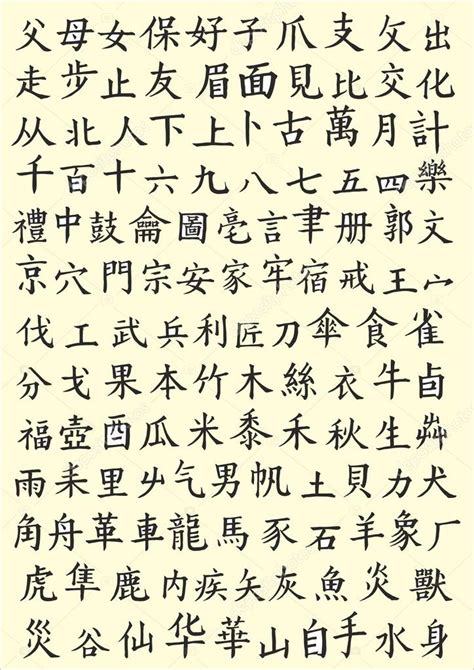 父母女保好子爪支攵出
走步止友眉面見比交化
从北人下上卜古萬月計
千百十六九八七五四樂
禮中鼓龠圖亳言聿册郭文
京穴門宗安家牢宿戒王宀
伐工武兵利匠刀傘食雀
分戈果本竹木絲衣牛卣
福壺酉瓜米黍禾秋生艸
雨耒里屮气男帆土贝力犬
角舟革車龍馬豕石羊象厂
虎隼鹿内疾矢灰魚炎獸
災谷仙华華山自手水身